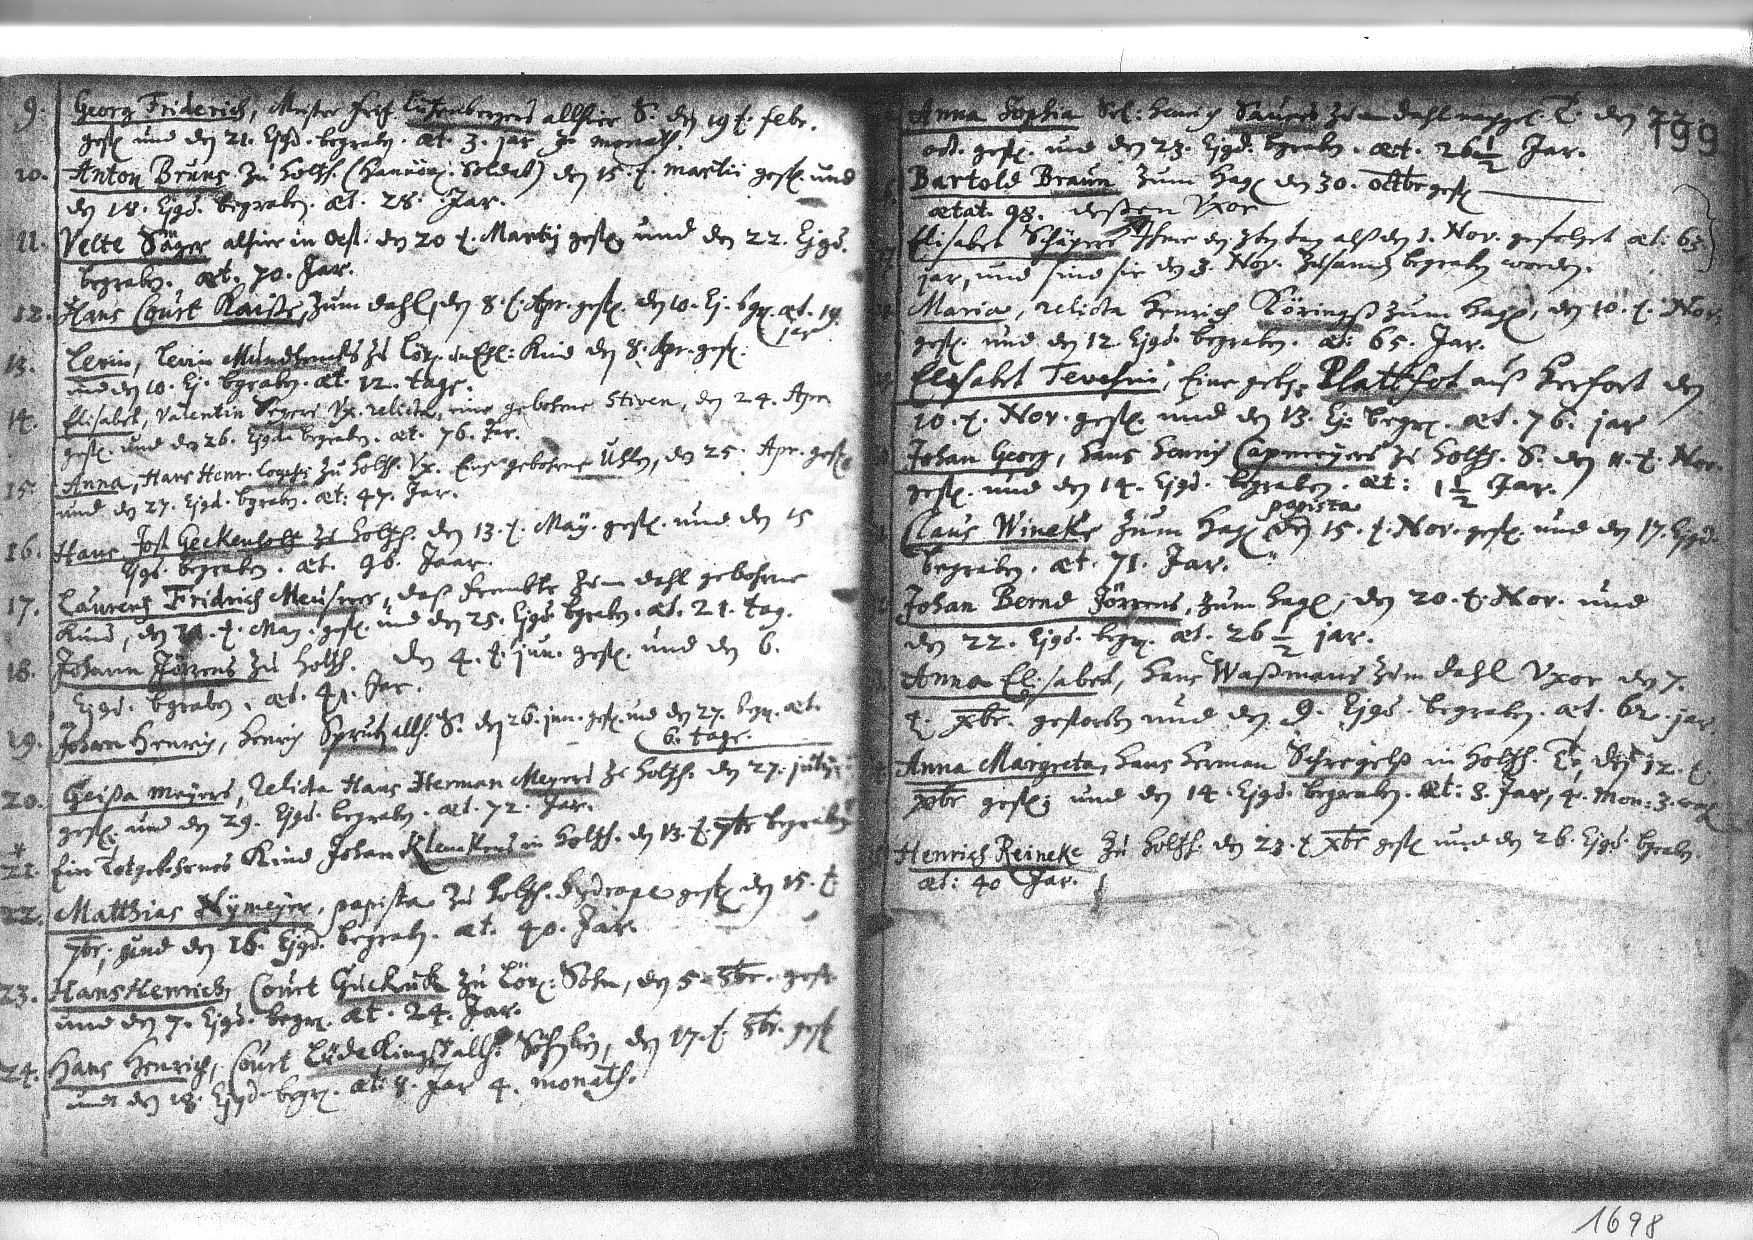 9. Georg Friderich, Meister allhier S. den 19 t. febr.
gest. und den 21. Ejsd. begraben. æt. 3. jar 3. monath.
10. Anton Bruns zu Holth. (Hannöv. Soldat) den 15. t. martii gest. und
den 18. Ejsd. begraben. æt. 28. Jar.
11. Velte Säger alhier in den 20 t. Martij gest. und den 22. Ejgd.
begraben. æt. 70. Jar.
12. Hans Court Kaiße, zum dahl, den 8. t. Apr. gest. den 10. Ej. bgr. æt. 19.
jar
13. Levin, Levin zu Lör. Kind den 8. Apr. gest.
und den 10. Ej. bgraben. æt. 12. tage.
14. Elisabet, Valentin Segers Vx. relicta, eine gebohrne Stiven, den 24. Apr.
gest. und den 26. Ejgd. begraben. æt. 76. Jar.
15. Anna, Hans Henr. zu Holth. Vx. Eine gebohrne Uhlen, den 25. Apr. gest.
und den 27. Ejgd. begraben. æt: 47. Jar.
16. Hans Jost Geckenholt zu Holth. den 13. t. Maÿ. gest. und den 15
Ejgd. begraben. æt. 96. Jaar.
17. Laurens Fridrich daß frembte zum dahl gebohrne
Kind, den t. May. gest. und den 25. Ejgd. bgraben. æt. 21. tag.
18. Johann Jörrens zu Holth. den 4. t. jun. gest. und den 6.
Ejgd. bgraben, æt. 41. Jar.
19. Johan Henrich, Henrich Sprutz allh. S. den 26. jun. gest. und den 27. begr. æt.
6. tage.
20. Geißa meyers, relicta Hans Herman Meyers zu Holth. den 27. julij
gest. und den 29. Ejgd. begraben. æt. 72. Jar.
21. Ein Todtgebohrnes Kind Johan in Holth. den 13. t. 7br begraben
22. Matthias Nÿmeyer, papista zu Holth. gest. den 15. t.
7br, und den 16. Ejgd. begrab. æt. 40. Jar.
23. Hans Henrich, Court Guckuck zu Lör: Sohn, den 5. 8br. gest.
und den 7. Ejgd. begr. æt. 24. Jar.
24. Hans Henrich, Court Lüdekings allh. Söhnlein, den 17. t. 8br. gest
und den 18. Ejgd. begr. æt: 8. Jar 4. monath.
199
Anna Sophia Sel: Henrich Saurs zum dahl T. den 22.
oct. gest. und den 23. Ejgd. bgraben. æt. 26 1/2 Jar.
Bartold Braun zum Hag den 30. octbr gest
ætat. 98. deßen Vxor
Elisabet Schäpers Ihme den 3ten tag alß den 1. Nov. gefolget æt: 65
jar, und sind sie den 3. Nov. zusamen begraben worden.
Maria, relicta Henrich Körings zum Hag, den 10. t. Nov.
gest. und den 12 Ejgd. begraben. æt: 65. Jar.
Elisabet Eine geb. Plattfot auß Herfort den
10. t. Nov. gest. und den 13. Ej: begr. æt. 76. jar
Johan Georg, Hans Henrich Capmeyers zu Holth. S. den 11. t. Nov.
gest. und den 14. Ejgd. begraben. æt: 1 1/2 Jar.
papista
Claus Wineke zum Hag den 15. t. Nov. gest. und den 17. Ejgd.
begraben. æt. 71. Jar.
Johan Bernd Jörrens, zum Hag, den 20. t. Nov. und
den 22. Ejgd. begr. æt. 26 1/2 jar.
Anna Elisabet, Hans Waßmans zum dahl Vxor den 7.
t. xbr. gestorben und den 9. Ejgd. begraben. æt. 62. jar.
Anna Margreta, Hans Herman in Holth. T. den 12. t.
xbr gest. und den 14. Ejgd. begraben. æt: 8. Jar, 4. Mon: 3.
Henrich Reineke zu Holth. den 23. t xbr gest und den 26. Ejgd. bgraben.
æt: 40 Jar.
1698